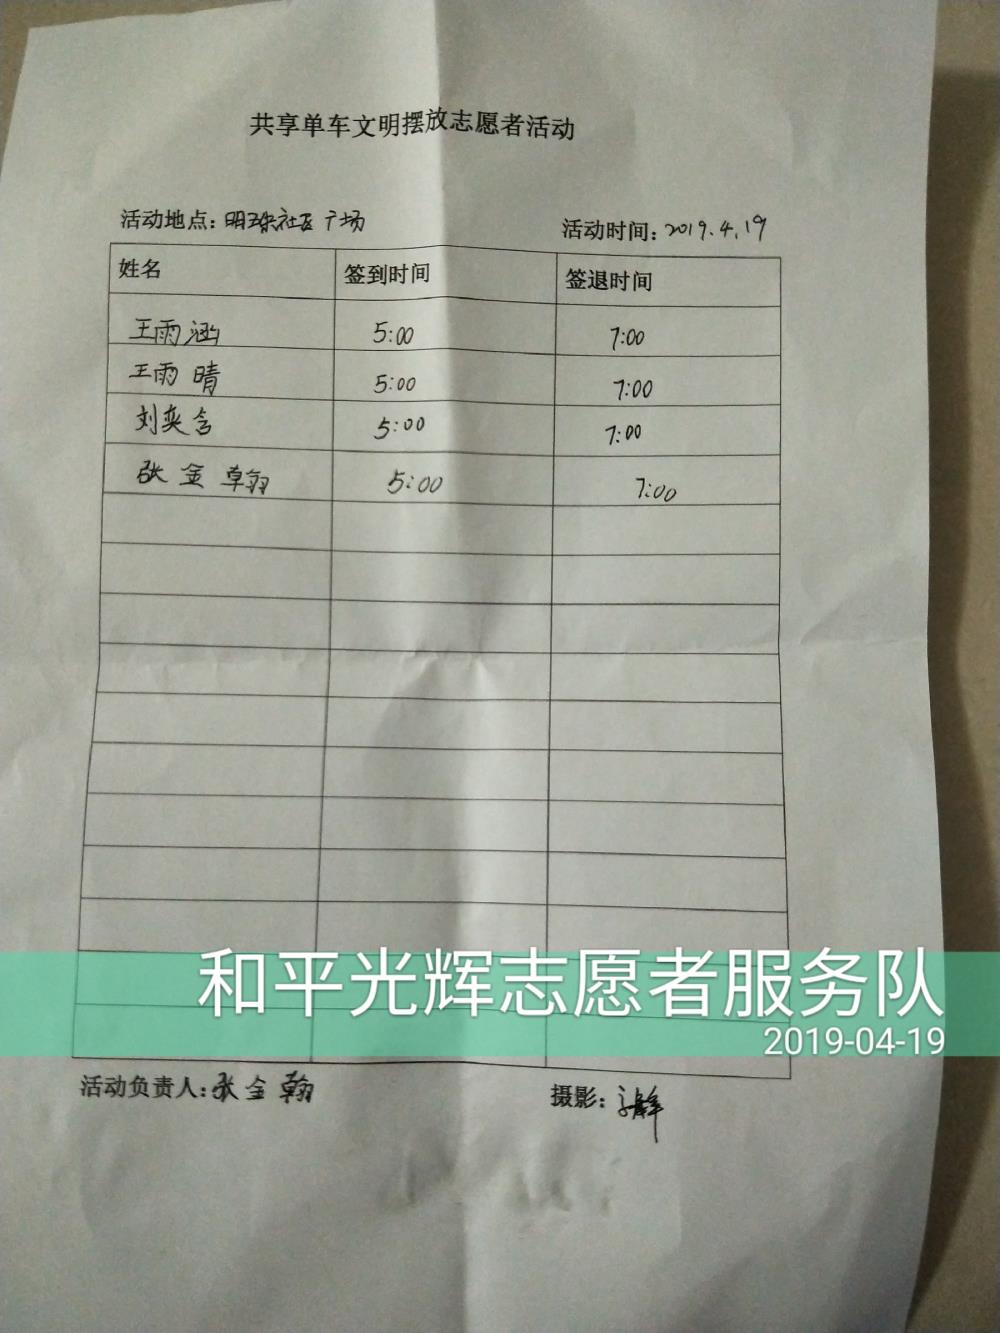 共享单车文明摆放志愿者活动
活动地点：明珠社区广场 活动时间：2019.4.19
姓名 签到时间 签退时间
王雨涵 5:00 7:00
王雨晴 5:00 7:00
刘奕含 5:00 7:00
张金翰 5:00 7:00
和平光辉志愿者服务队
2019-04-19
活动负责人：张金翰 摄影：